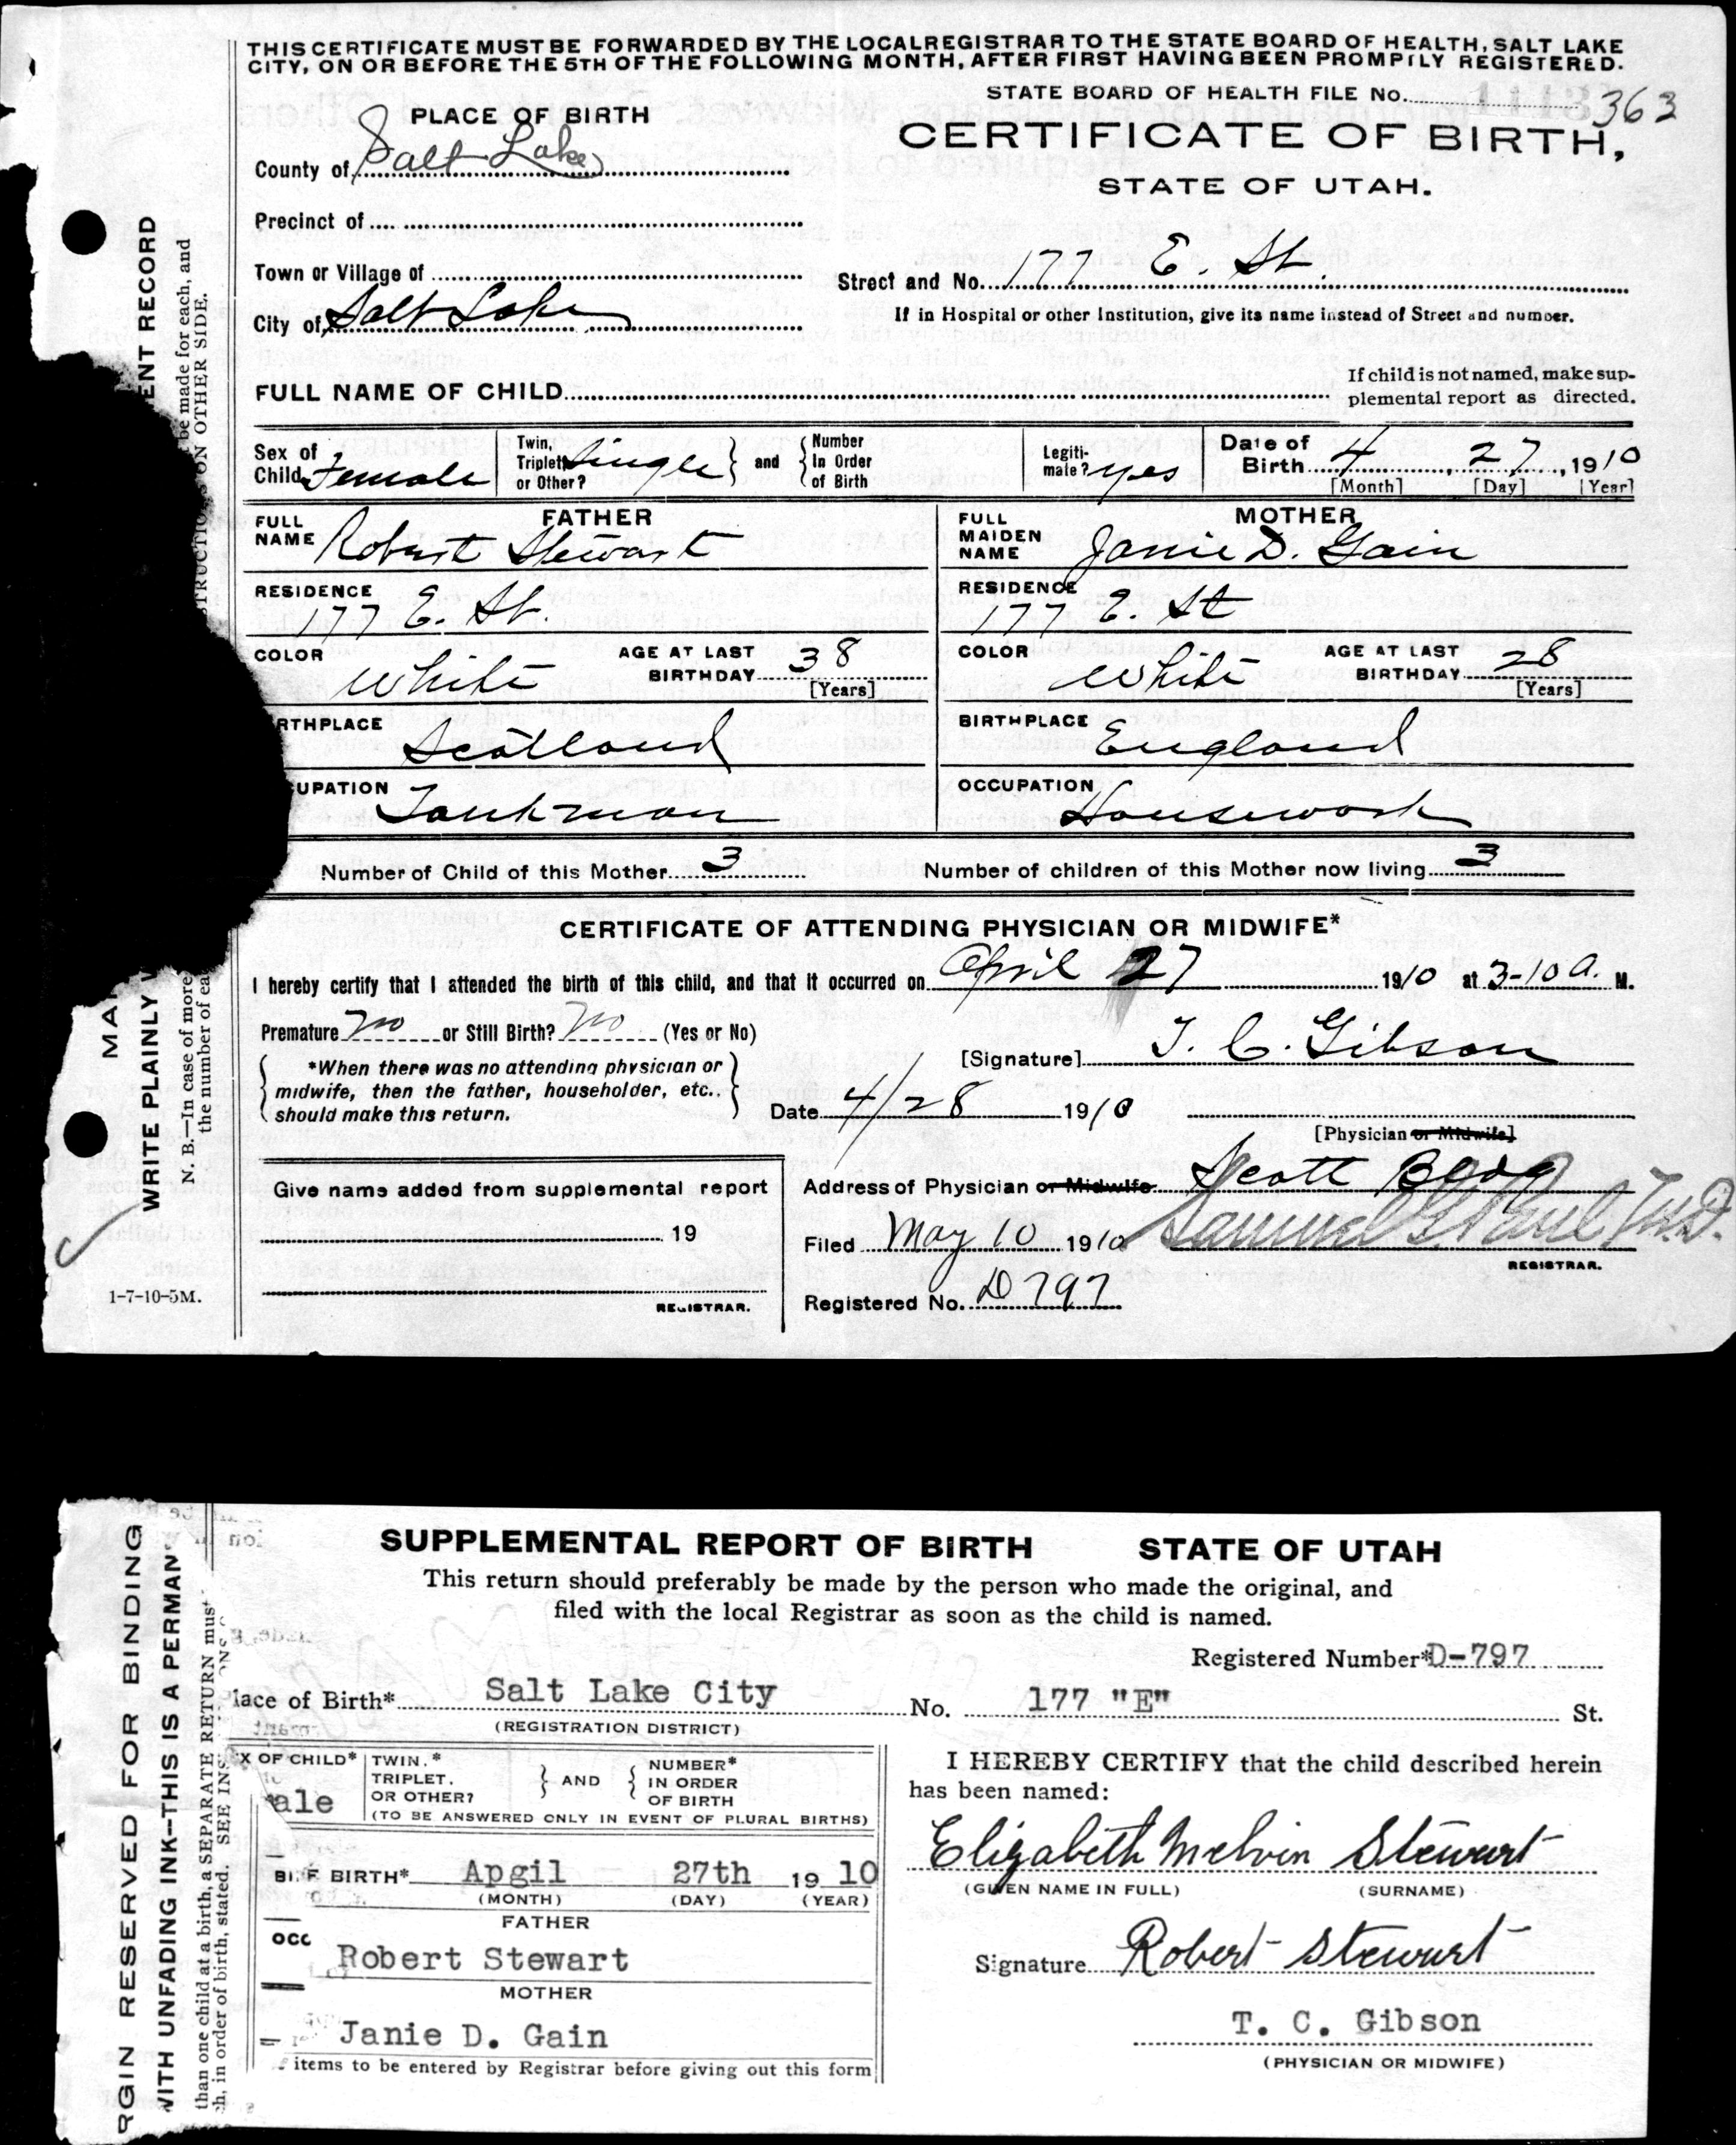 THIS CERTIFICATE MUST BE FORWARDED BY THE LOCAL REGISTRAR TO THE STATE BOARD OF HEALTH, SALT LAKE
CITY, ON OR BEFORE THE 5TH OF THE FOLLOWING MONTH, AFTER FIRST HAVING BEEN PROMPTLY REGISTERED.
STATE BOARD OF HEALTH FILE No. 363
PLACE OF BIRTH
CERTIFICATE OF BIRTH,
STATE OF UTAH.
County of Salt Lake
Precinct of
Town or Village of
Street and No. 177 E. St.
City of Salt Lake
If in Hospital or other Institution, give its name instead of Street and number.
FULL NAME OF CHILD
If child is not named, make sup-
plemental report as directed.
Sex of Child Female
Twin, Triplet or Other? Single } and { Number In Order of Birth
Legiti-mate? yes
Date of Birth 4, 27, 1910
[Month] [Day] [Year]
FATHER
FULL NAME Robert Stewart
MOTHER
FULL MAIDEN NAME Janie D. Gain
RESIDENCE 177 E. St.
RESIDENCE 177 E. St
COLOR White AGE AT LAST BIRTHDAY 38 [Years]
COLOR White AGE AT LAST BIRTHDAY 28 [Years]
RTHPLACE Scotland
BIRTHPLACE England
UPATION Tankman
OCCUPATION Housework
Number of Child of this Mother 3 Number of children of this Mother now living 3
CERTIFICATE OF ATTENDING PHYSICIAN OR MIDWIFE*
I hereby certify that I attended the birth of this child, and that it occurred on April 27 1910 at 3-10 a. M.
Premature no or Still Birth? no (Yes or No)
*When there was no attending physician or
midwife, then the father, householder, etc.,
should make this return.
[Signature] T. C. Gibson
Date 4/28 1910
[Physician or Midwife]
Give name added from supplemental report
19
REGISTRAR.
Address of Physician or Midwife Scott Bldg
Filed May 10 1910 Samuel G. Paul M.D.
REGISTRAR.
Registered No. D 797
ENT RECORD
be made for each, and
STRUCTIONS ON OTHER SIDE.
MA
WRITE PLAINLY W
N. B.—In case of more
the number of ea
1-7-10-5M.
SUPPLEMENTAL REPORT OF BIRTH STATE OF UTAH
This return should preferably be made by the person who made the original, and
filed with the local Registrar as soon as the child is named.
Registered Number* D-797
lace of Birth* Salt Lake City No. 177 "E" St.
(REGISTRATION DISTRICT)
X OF CHILD* ale
TWIN,* TRIPLET, OR OTHER? } AND { NUMBER* IN ORDER OF BIRTH
(TO BE ANSWERED ONLY IN EVENT OF PLURAL BIRTHS)
BIRTH* Apgil 27th 19 10
(MONTH) (DAY) (YEAR)
FATHER
OCC
Robert Stewart
MOTHER
Janie D. Gain
items to be entered by Registrar before giving out this form
I HEREBY CERTIFY that the child described herein
has been named:
Elizabeth Melvin Stewart
(GIVEN NAME IN FULL) (SURNAME)
Signature Robert Stewart
T. C. Gibson
(PHYSICIAN OR MIDWIFE)
RGIN RESERVED FOR BINDING
WITH UNFADING INK—THIS IS A PERMAN
than one child at a birth, a SEPARATE RETURN must
h, in order of birth, stated. SEE INS